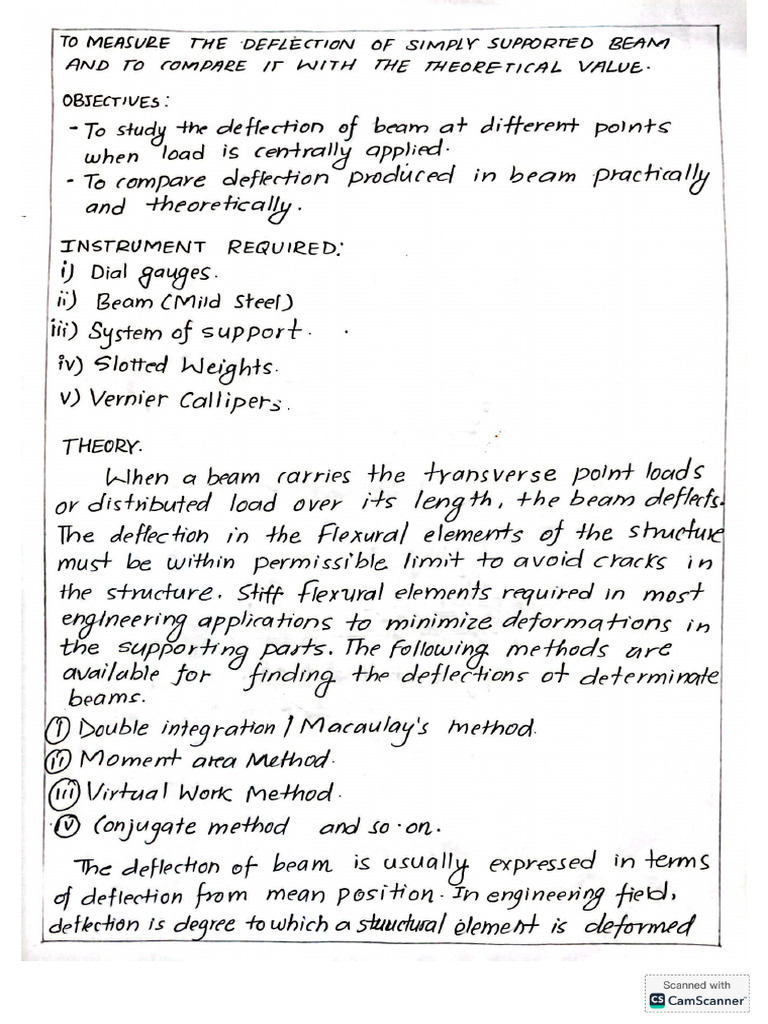 TO MEASURE THE DEFLECTION OF SIMPLY SUPPORTED BEAM
AND TO COMPARE IT WITH THE THEORETICAL VALUE.
OBJECTIVES:
- To study the deflection of beam at different points
when load is centrally applied.
- To compare deflection produced in beam practically
and theoretically.
INSTRUMENT REQUIRED:
i) Dial gauges.
ii) Beam (Mild Steel)
iii) System of support.
iv) Slotted Weights.
v) Vernier Callipers.
THEORY.
When a beam carries the transverse point loads
or distributed load over its length, the beam deflects.
The deflection in the flexural elements of the structure
must be within permissible limit to avoid cracks in
the structure. Stiff flexural elements required in most
engineering applications to minimize deformations in
the supporting parts. The following methods are
available for finding the deflections of determinate
beams.
(i) Double integration / Macaulay's method.
(ii) Moment area Method.
(iii) Virtual Work Method.
(iv) Conjugate method and so on.
The deflection of beam is usually expressed in terms
of deflection from mean position. In engineering field,
deflection is degree to which a structural element is deformed
Scanned with
CS CamScanner